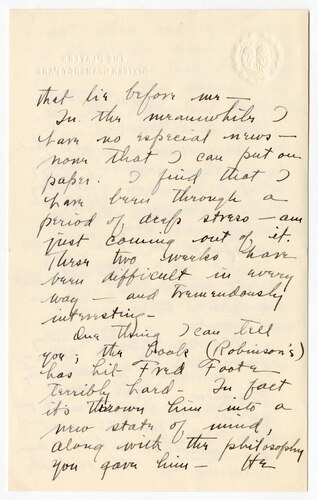 THE PLAYERS
SIXTEEN GRAMERCY PARK
that lie before me —
In the meanwhile I
have no especial news —
none that I can put on
paper. I find that I
have been through a
period of deep stress — am
just coming out of it.
These two weeks have
been difficult in every
way — and tremendously
interesting —
One thing I can tell
you; the book (Robinson's)
has hit Fred Foote
terribly hard — In fact
it's thrown him into a
new state of mind,
along with the philosophy
you gave him — He